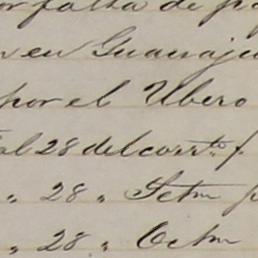 or falta de p
n en Guanaju
por el Ubero
al 28 del corrto. f
" 28 " Setm p
" 28 " Octm